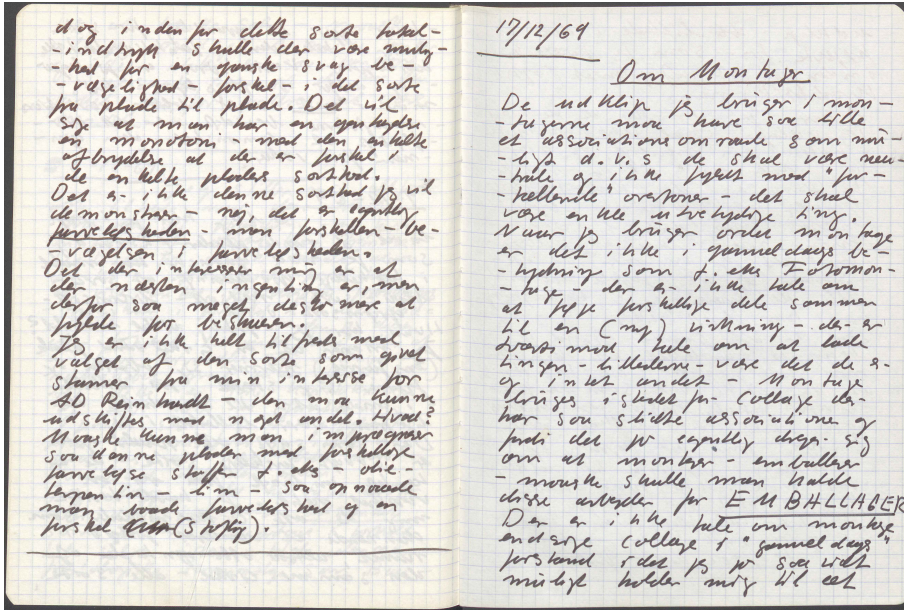 dog inden for dette sorte total-
-indtryk skulle der være mulig-
-hed for en ganske svag be-
-vægelighed - forskel - i det sorte
fra plade til plade. Det vil
sige at man har en gentagelse
en monotoni - med den enkelte
afbrydelse at der er forskel i
de enkelte pladers sorthed.
Det er ikke denne sorthed jeg vil
demonstrere - nej, det er egentlig
farveløsheden - men forskellen - be-
-vægelsen i farveløsheden.
Det der interesserer mig er at
der næsten ingenting er, men
derfor saa meget desto mere at
for beskueren.
Jeg er ikke helt tilfreds med
valget af den sorte som givet
stammer fra min interesse for
AD Reinhardt - den maa kunne
udskiftes med noget andet. Hvad?
Maaske kunne man imprægnere
saadanne plader med forskellige
farveløse stoffer f.eks - olie -
terpentin - lim - saa opnaaede
man baade farveløshed og en
forskel (S).
17/12/69
Om Montager
De udklip jeg bruger i mon-
-tagerne maa have saa lille
et associationsomraade som mu-
-ligt d.v.s de skal være neu-
-trale og ikke fyldt med "for-
-tællende" overtoner - det skal
være enkle utvetydige ting.
Naar jeg bruger ordet montage
er det ikke i gammeldags be-
-tydning som f.eks Fotomon-
-tage - der er ikke tale om
at føje forskellige dele sammen
til en (ny) virkning - der er
tværtimod tale om at lade
tingen - billederne - være det de er
og intet andet - Montage
bruges istedet for Collage der
har saa slidte associationer og
fordi det jo egentlig drejer sig
om at montere - emballere
- maaske skulle man kalde
disse arbejder for EMBALLAGER
Der er ikke tale om montage
endsige collage i "gammeldags"
forstand idet jeg jo saa vidt
muligt holder mig til eet